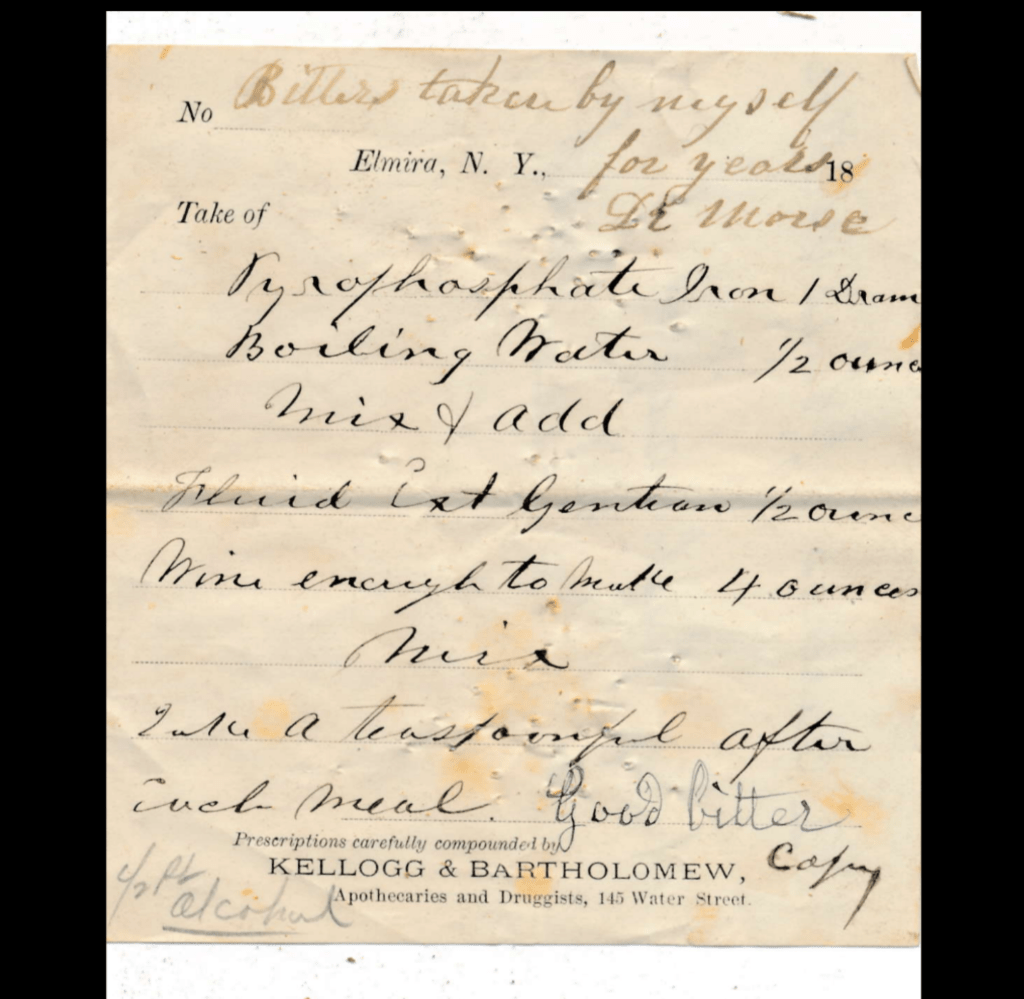 No Bitters taken by myself
Elmira, N. Y., for years 18
Take of Dr Morse
Pyrophosphate Iron 1 Dram
Boiling Water 1/2 ounc
Mix & add
Fluid Ext Gentian 1/2 ounc
Wine enough to make 4 ounces
Mix
Take a teaspoonful after
each meal. Good bitter
Prescriptions carefully compounded by
KELLOGG & BARTHOLOMEW, Copy
Apothecaries and Druggists, 145 Water Street.
1/2 Pt
alcohol